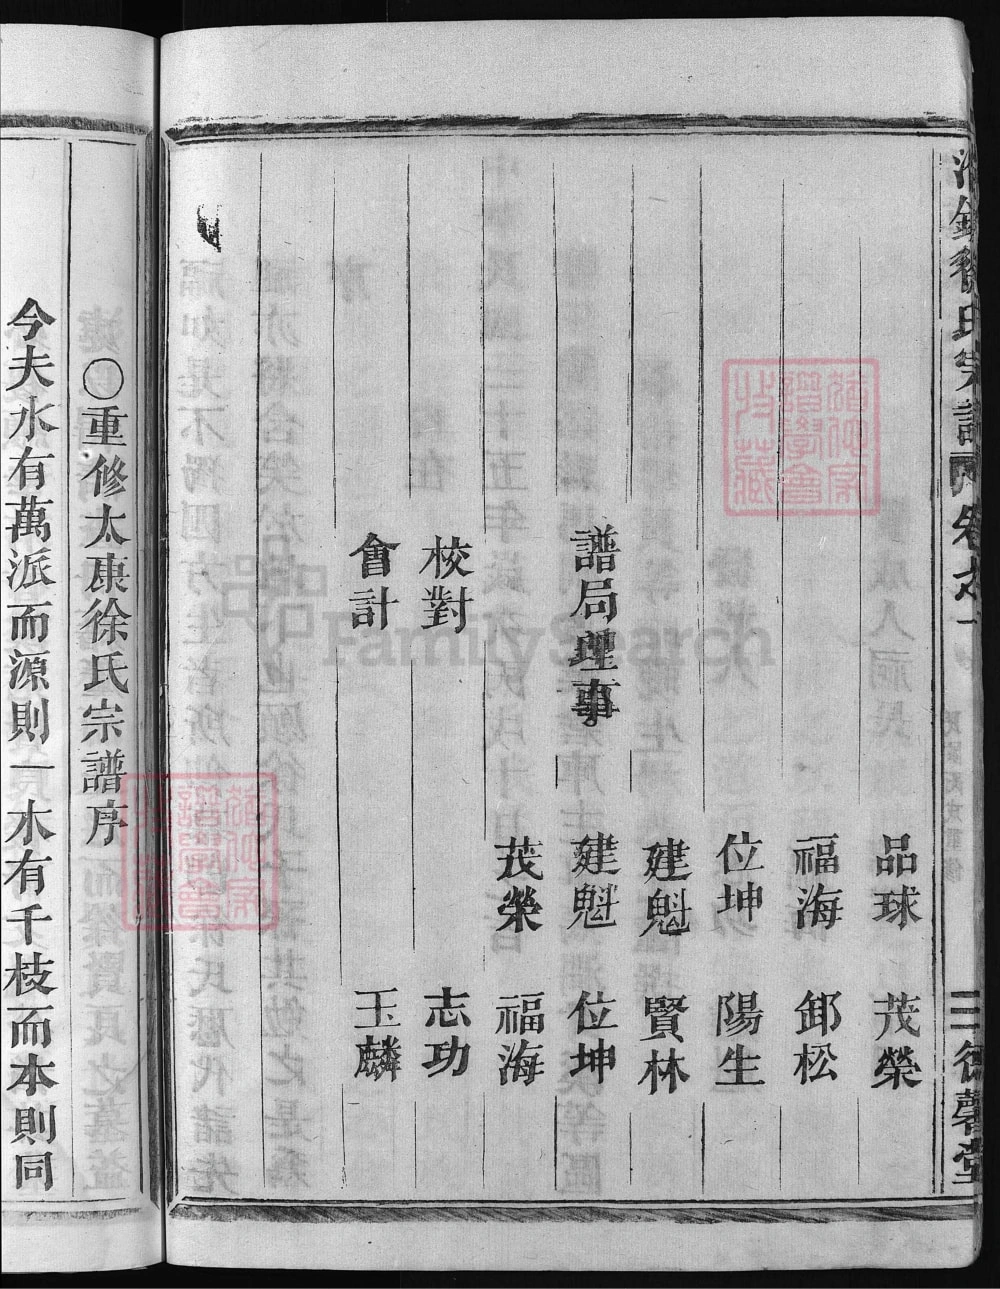 氏宗譜 卷之一
二 德馨堂
品球 茂榮
福海 郵松
位坤 陽生
建魁 賢林
譜局理事 建魁 位坤
茂榮 福海
校對 志功
會計 玉麟
〇重修太康徐氏宗譜序
今夫水有萬派而源則一木有千枝而本則同
譜學會
收藏
FamilySearch
譜學會